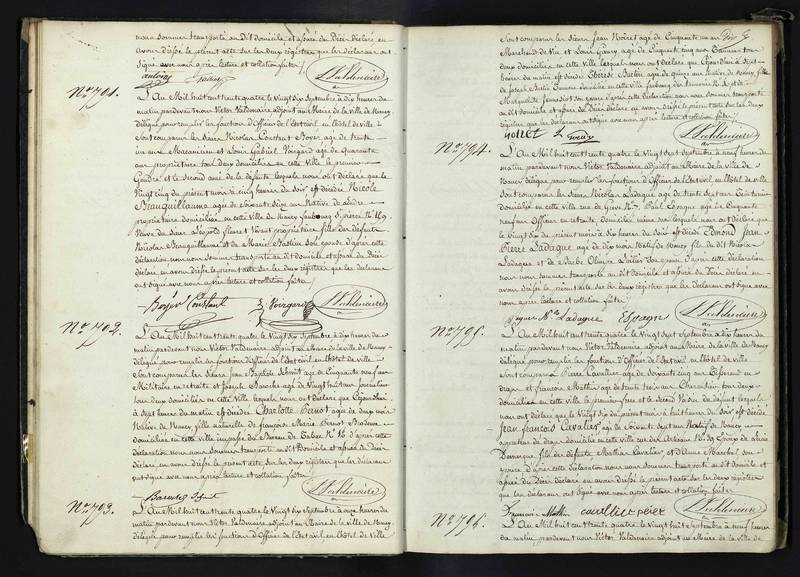 nous sommes transporté au dit domicile et assuré du Décès déclaré en
avons dressé le présent acte sur les deux registres que les déclarans ont
signé avec nous après lecture et collation faites
antoine
N° 791.
L'An Mil huit cent trente quatre le Vingt six Septembre à dix heures du
matin pardevant nous Victor Valdenaire adjoint au Maire de la ville de Nancy
délégué pour remplir les fonctions d'Officier de l'Etat civil en l'hôtel de ville
sont comparus les sieurs Nicolas Constant Boyer agé de trente
un ans Mécanicien et Louis Gabriel Voirgard agé de Quarante
ans propriétaire tous deux domiciliés en cette Ville le premier
Gendre et le second ami de la défunte lesquels nous ont déclaré que le
Vingt cinq du présent mois à cinq heures du soir est décédée Nicole
Beauguillaume agée de soixante six ans Native de
propriétaire domiciliée en cette ville de Nancy faubourg St. pierre N° 49
Veuve du sieur Léopold vivant propriétaire, fille des défunts
Nicolas Beauguillaume et de Marie Bastien son épouse d'après cette
déclaration nous nous sommes transporté au dit domicile et assuré du Décès
déclaré en avons dressé le présent acte sur les deux registres que les déclarans
ont signé avec nous après lecture et collation faites
Boyer Constant Voirgard Valdenaire
N° 792.
L'An Mil huit cent trente quatre le Vingt six Septembre à dix heures du
matin pardevant nous Victor Valdenaire adjoint au Maire de la ville de Nancy
délégué pour remplir les fonctions d'Officier de l'Etat civil en l'hôtel de ville
sont comparus les sieurs Jean Baptiste Schmit agé de Cinquante neuf ans
Militaire en retraite et Joseph Baroche agé de Vingt huit ans
tous deux domiciliés en cette Ville lesquels nous ont déclaré que Cejourd'hui
à sept heures du matin est décédée Charlotte Pernot agée de deux mois
Native de Nancy, fille naturelle de françoise Marie Pernot Brodeuse
domiciliée en cette ville impasse du Bureau de Tabac N° 16 d'après cette
déclaration nous nous sommes transporté au dit Domicile et assuré du Décès
déclaré, en avons dressé le présent acte sur les deux registres que les déclarans
ont signé avec nous après lecture et collation faites
Valdenaire
N° 793.
L'An Mil huit cent trente quatre le Vingt six Septembre à onze heures du
matin pardevant nous Victor Valdenaire adjoint au Maire de la ville de Nancy
délégué pour remplir les fonctions d'Officier de l'Etat civil, en l'hôtel de Ville
sont comparus les sieurs Jean Noiret agé de Cinquante un ans
Marchand de Vin et Louis Goury agé de Cinquante cinq ans tous
deux domiciliés, en cette Ville lesquels nous ont déclaré que Cejourd'hui à sept
heures du matin est décédée Thérèse Barbin agée de quinze ans Native de Nancy, fille
de Joseph Barbin domicilié en cette ville faubourg des et de
Marguerite son épouse d'après cette déclaration nous nous sommes transporté
au dit Domicile, et assuré du Décès déclaré en avons dressé le présent acte sur les deux
registres, que les déclarans ont signé avec nous après lecture et collation faites
L Goury Valdenaire
N° 794.
L'An Mil huit cent trente quatre le Vingt sept Septembre à neuf heures du
matin, pardevant nous Victor Valdenaire adjoint au Maire de la ville de
Nancy délégué pour remplir les fonctions d'Officier de l'Etat civil, en l'hôtel de ville
sont comparus les sieurs Nicolas Ladague agé de trente sept ans
domicilié en cette ville rue de Grève N° 7. Paul Espagne agé de Cinquante
neuf ans Officier en retraite, domicilié même rue lesquels nous ont déclaré que
le Vingt six du présent mois à six heures du Soir est décédé Edmond Jean
Pierre Ladague agé de dix mois, Natif de Nancy, fils du dit Nicolas
Ladague et de Barbe Olimpe son épouse, d'après cette déclaration
nous nous sommes transporté au dit domicile et assuré du Décès déclaré en
avons dressé le présent acte sur les deux registres que les déclarans ont signé avec
nous, après lecture et collation faites
Ladague Espagne Valdenaire
N° 795.
L'An Mil huit cent trente quatre le Vingt sept Septembre à dix heures du
matin, pardevant nous Victor Valdenaire adjoint au Maire de la ville de Nancy
délégué pour remplir les fonctions d'Officier de l'Etat civil en l'hôtel de ville
sont comparus Pierre Cavallier agé de soixante cinq ans Tisserand en
draps et François Mathis agé de trente trois ans Charpentier tous deux
domiciliés en cette Ville, le premier frère et le second Voisin du défunt lesquels
nous ont déclaré que le Vingt six du présent mois à huit heures du Soir est décédé
Jean François Cavalier agé de soixante sept ans Natif de Nancy
appreteur de draps domicilié en cette ville rue des Artisans N° 29 Epoux de
fils des défunts Mathias Cavalier, et d'Anne Marchal son
épouse, d'après cette déclaration nous nous sommes transporté au dit domicile et
assuré du Décès déclaré en avons dressé le présent acte sur les deux registres
que les déclarans, ont signé avec nous après lecture et collation faites
François Mathis Valdenaire
N° 796.
L'An Mil huit cent trente quatre le Vingt huit Septembre à neuf heures
du matin, pardevant nous Victor Valdenaire adjoint au Maire de la Ville de